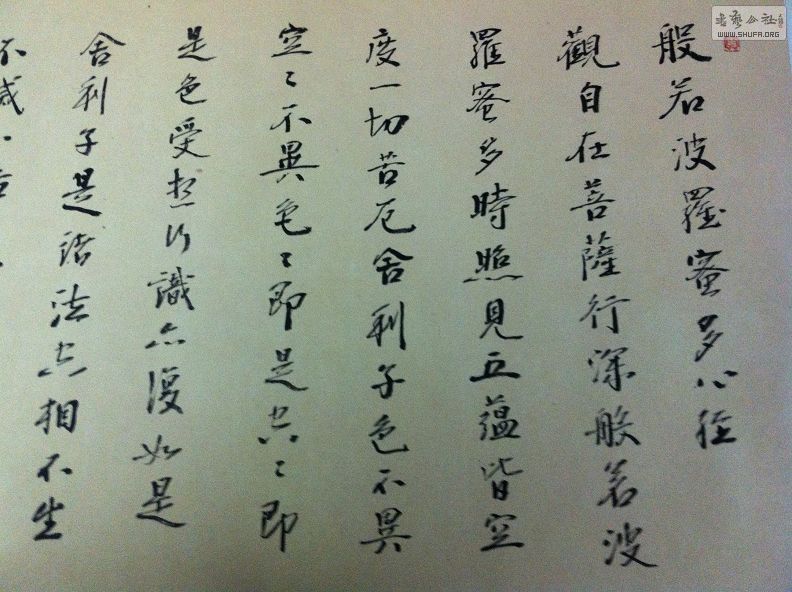 般若波羅蜜多心経
觀自在菩薩行深般若波
羅蜜多時照見五蘊皆空
度一切苦厄舍利子色不異
空〻不異色〻即是空〻即
是色受想行識亦復如是
舍利子是諸法空相不生
不减
书艺公社
WWW.SHUFA.ORG